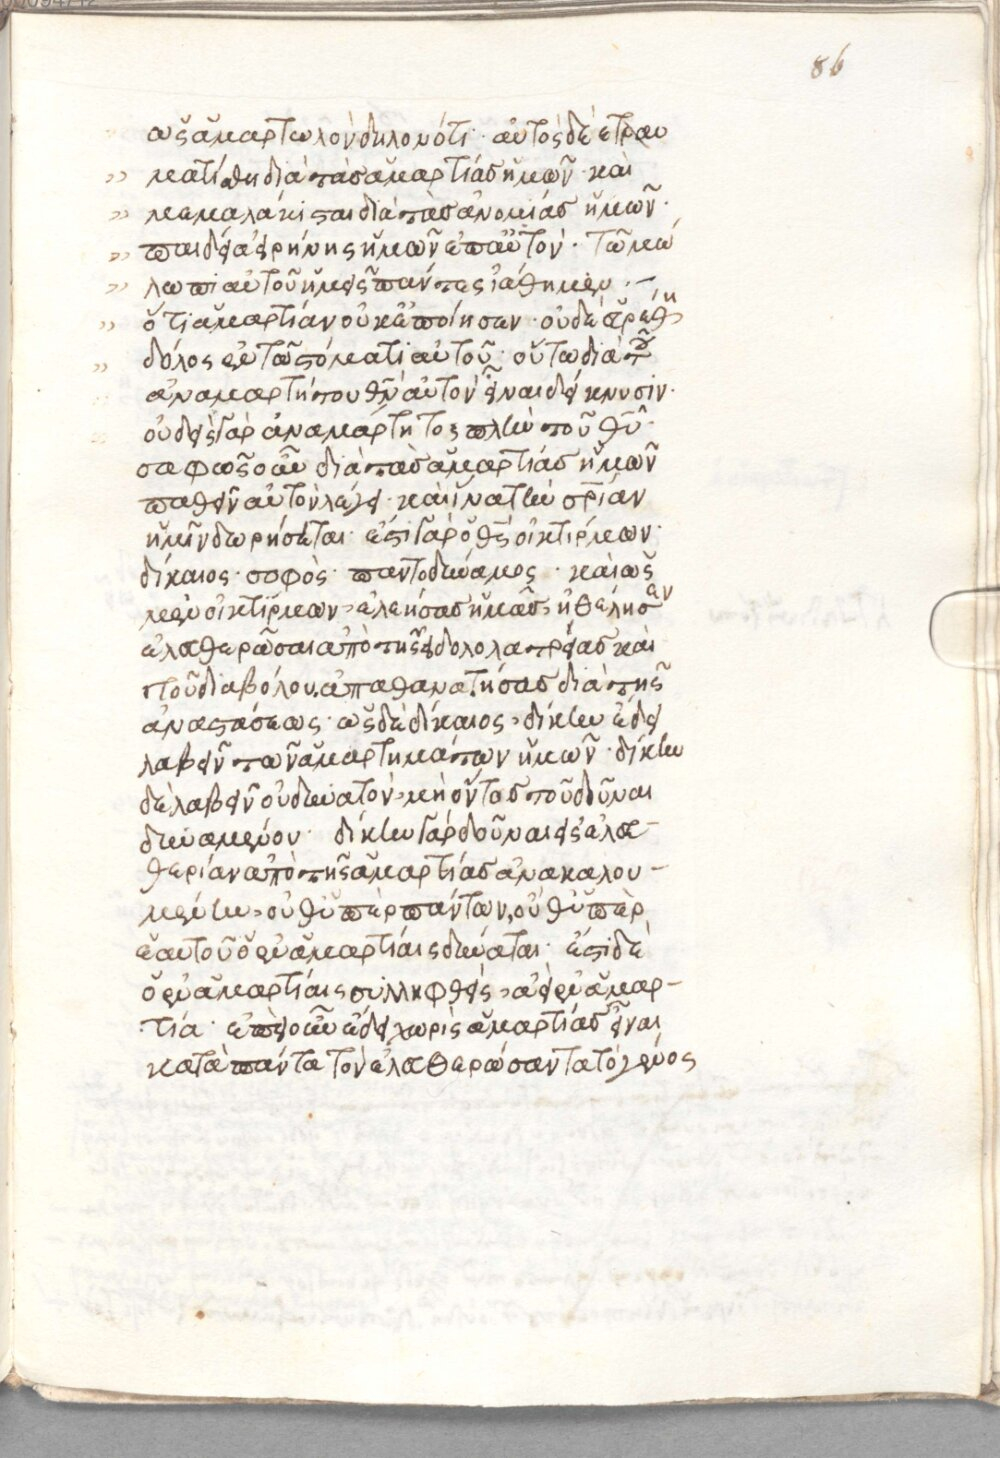 86
ὡς ἁμαρτωλὸν δηλονότι· αὐτὸς δὲ ἐτραυ
ματίσθη διὰ τὰς ἁμαρτίας ἡμῶν· καὶ
μεμαλάκισται διὰ τὰς ἀνομίας ἡμῶν·
παιδεία εἰρήνης ἡμῶν ἐπ αὐτόν· τῷ μώ
λωπι αὐτοῦ ἡμεῖς πάντες ἰάθημεν·
ὅτι ἁμαρτίαν οὐκ ἐποίησεν· οὐδὲ εὑρέθη
δόλος ἐν τῷ στόματι αὐτοῦ· οὕτω διὰ τοῦ
ἀναμαρτήτου θν αὐτὸν εἶναι δείκνυσιν·
οὐδεὶς γὰρ ἀναμάρτητος πλὴν τοῦ θυ·
σαφῶς οὖν διὰ τὰς ἁμαρτίας ἡμῶν
παθεῖν αὐτὸν λέγει· καὶ ἵνα τὴν σρίαν
ἡμῖν δωρήσεται· ἐστὶ γὰρ ὁ θς οἰκτίρμων·
δίκαιος· σοφὸς· παντοδύναμος· καὶ ὡς
μὲν οἰκτίρμων, ἐλεήσας ἡμᾶς, ἠθέλησεν
ἐλευθερῶσαι ἀπὸ τῆς εἰδολολατρείας καὶ
τοῦ διαβόλου, ἀπαθανατήσας διὰ τῆς
ἀναστάσεως· ὡς δὲ δίκαιος, δίκην ἔδει
λαβεῖν τῶν ἁμαρτημάτων ἡμῶν· δίκην
δὲ λαβεῖν οὐ δυνατὸν, μὴ ὄντος τοῦ δοῦναι
δυναμένου· δίκην γὰρ δοῦναι εἰς ἐλευ-
θερίαν ἀπὸ τῆς ἁμαρτίας ἀνακαλου-
μένην, οὐχ ὑπὲρ πάντων, οὐχ ὑπὲρ
ἑαυτοῦ ὁ ἐν ἁμαρτίαις δύναται· ἐστὶ δὲ
ὁ ἐν ἁμαρτίαις συλληφθεὶς, ἀεὶ ἐν ἁμαρ-
τία· ἐπεὶ οὖν ἔδει χωρὶς ἁμαρτίας εἶναι
κατὰ πάντα τὸν ἐλευθερώσαντα τὸ γένος